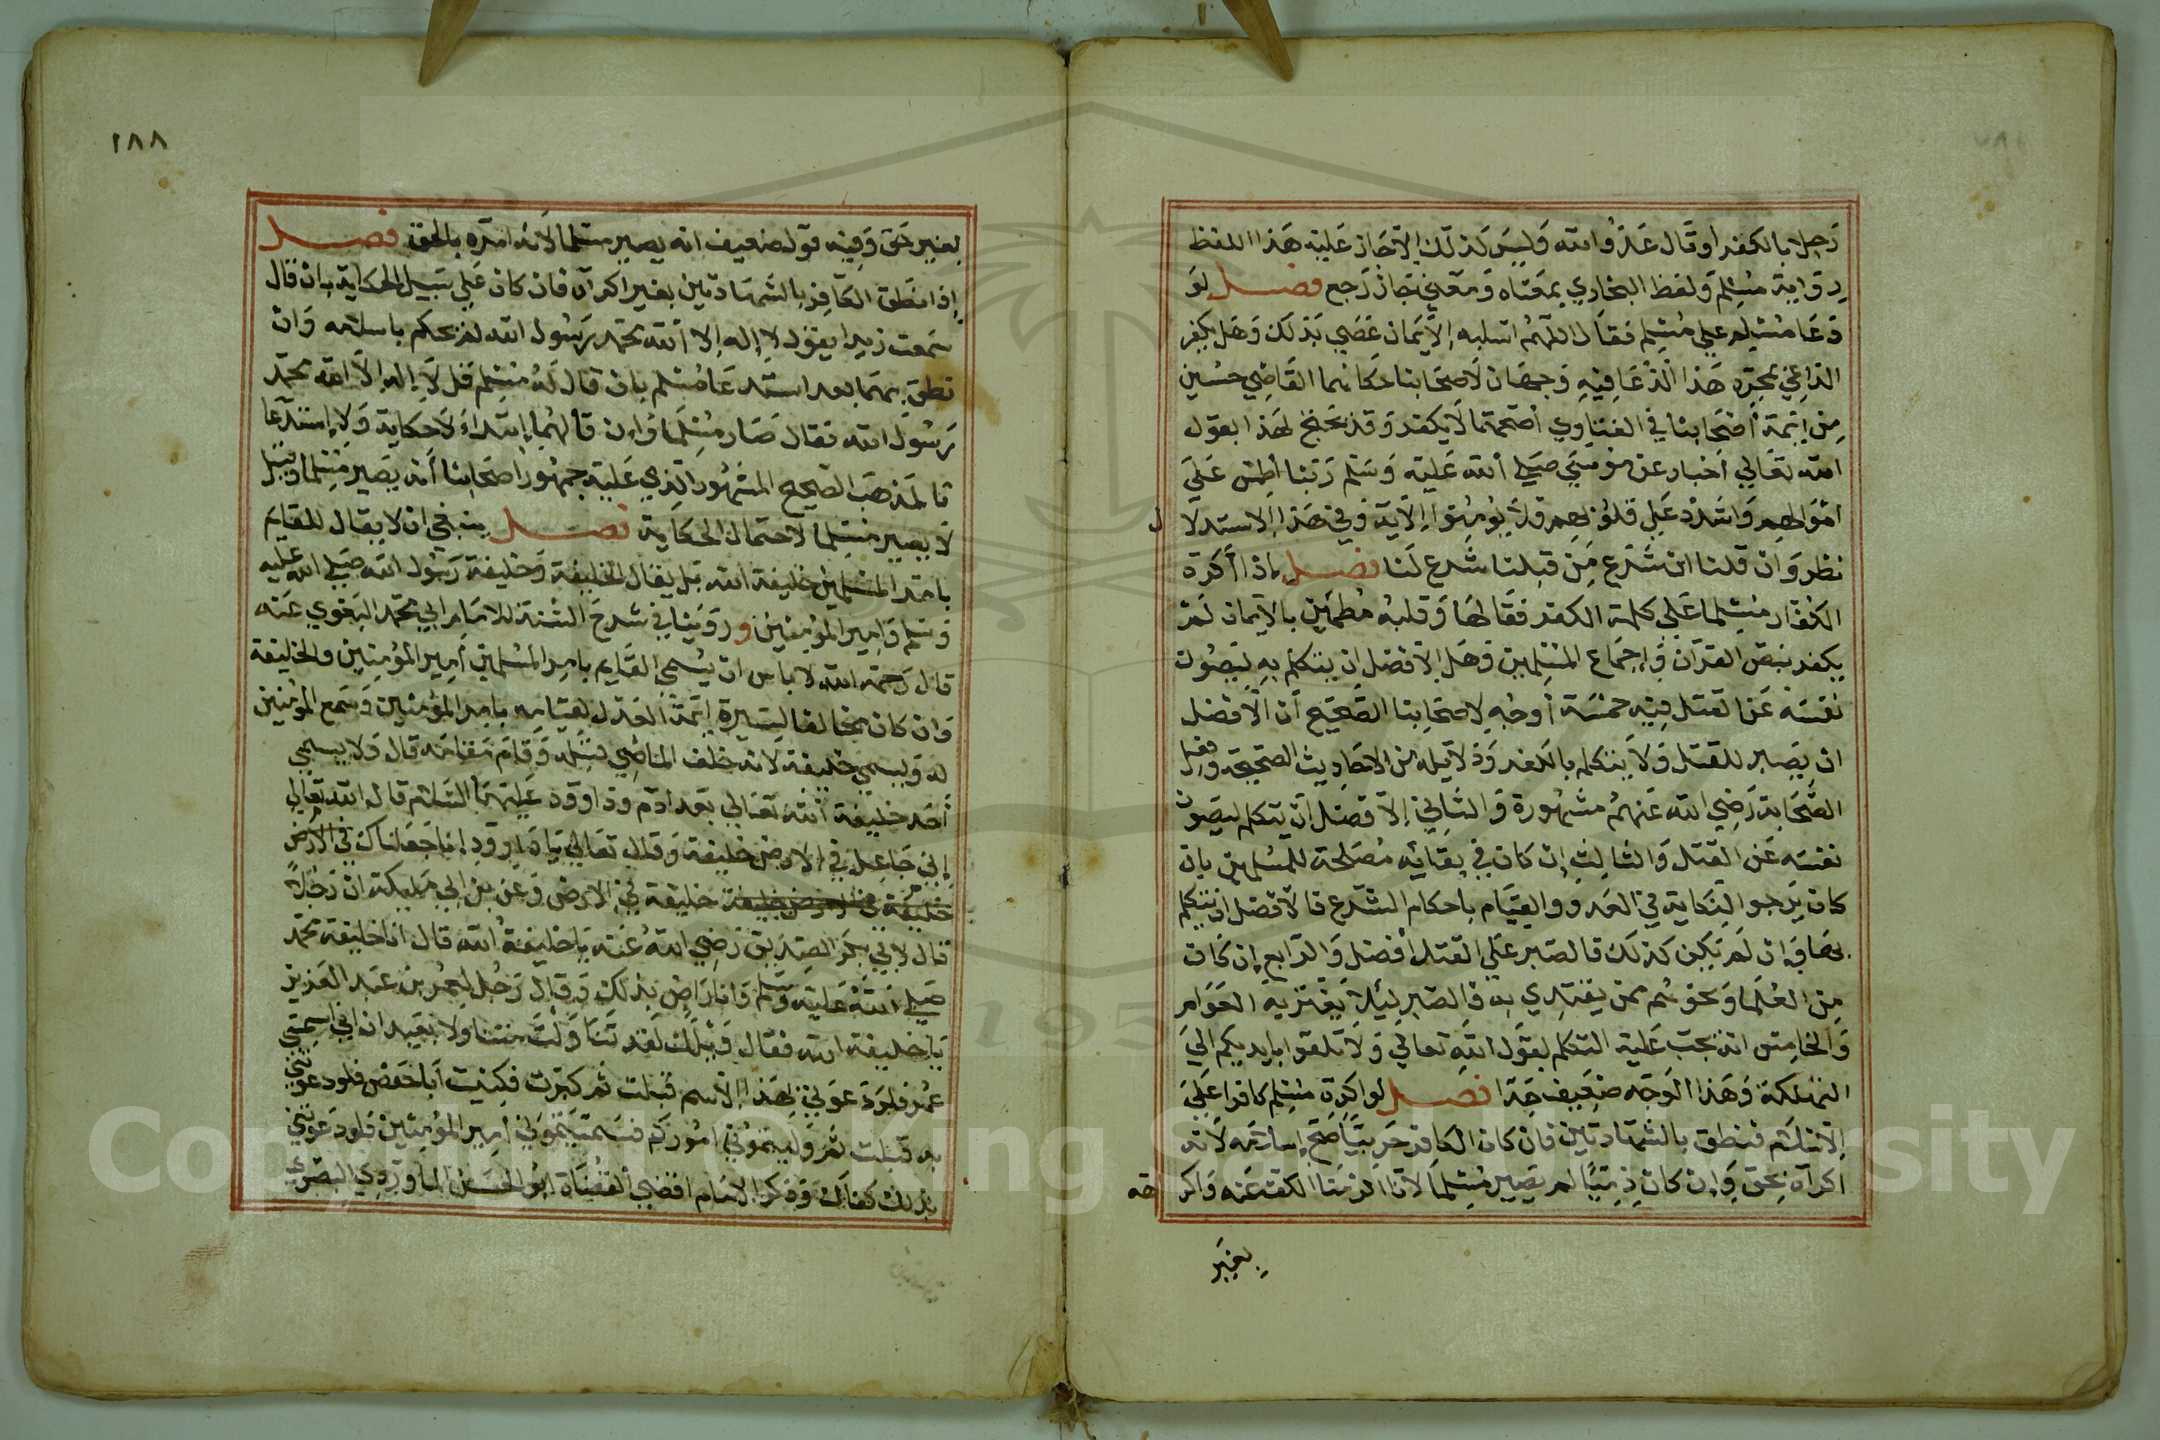 رَجلا بالكفر أوقال عَدُوُّ الله وَليسَ كذلك إلاحَار عَليه هَذا اللفظ
رِوَاية مُسْلم وَلفظ البخاري بمعَناه وَمَعْني حَار رَجع فصل لوَ
دَعَا مُسْلم علي مُسْلم فقال اللهُمّ اسلبه الاِيمَان عَصَي بذلك وَهَل يكفر
الدَاعِي بمجرّد هَذا الدّعَا فيهِ وَجهان لاَصحَابنا حكاهما القَاضي حسَين
مِن اِئمة أصْحَابنا في الفتاوي أصَحهمَا لاَ يكفر وَقد يحَتج لهَذا بقول
الله تعَالي اخبار عن موسَي صَلي الله عَليه وَسَلم رَبّنا اطمِس عَلَي
امْوالهم وَاشدُد عَلي قلوُبهم فلاَ يُومِنوا الاية وَفي هَذا الاستدلا ل
نظر وَان قلنا ان شَرْع مَن قبلنا شَرع لَنا فصل إذا أكَره
الكفّار مُسْلما عَلي كلمة الكفر فقالهَا وَقلبهُ مُطمَين بالايمان لَمْ
يكفر بنصّ القرآن وَاجماع المسلِمين وَهَل الافضل ان يتكلم بهِ ليَصُون
نفسَه عَن القتل فيه خمسَة أوجُهٍ لاصحَابنا الصَّحِيح أن الاَفضل
ان يَصبر للقتل وَلاَ يتكلم بالكفر وَدلاَيله من الاحَاديث الصَحيحة وفعل
الصَّحَابة رَضي الله عَنهُمْ مشهُورة وَالثاني الاَفضل أن يتكلم ليصَون
نفسَه عَن القتل وَالثالِث إن كان في بقائه مُصَلحة للمُسْلمين بان
كان يَرجوا النِكاية في العَدو والقيَام باحكام الشرع فالافضل ان يتكلم
بهَا وَان لَم يَكن كذلك فالصَبر عَلي القتل أفضل وَالرَابع إن كَان
مِن العُلمَا وَنحوهُم ممن يقتدي به فالصَبر لئِلاَ يَغترَّ به العَوَام
وَالخامِس انه يَجب عَليه التكلم لقول اللهِ تعالي وَلاَ تلقوا بايديكم اليَ
التهلكة وَهَذا الوَجه ضعِيف جدّا فصل لو اكرَه مُسْلم كافرا عَلَيَ
الاسْلام فنطق بالشهَادتين فان كان الكافر حَربيّا صَحّ إسلامَه لأنه
اكرَاه بحَق وَإن كان ذِميّا لم يَصير مُسْلِمَا لانا التزمنَا الكف عَنه وَاكر اهه
بغيَر
١٨٨
بغير حَق وَفِيه قول ضعيف انه يصير مسلما لاَنه امرَه بالحق فصل
إذا نطق الكَافِر بالشهَادتين بغير اكرَاه فان كان عَلي سَبيل الحكاية بان قال
سَمعت زيدا يقول لا إله إلا الله محمّد رَسُول الله لم يحكم باسلامه وَان
نطق بهمَا بعد استدعَا مُسْلم بان قال لهُ مُسْلم قل لاَ إله إلاَّ الله محمّد
رَسُول الله فقال صَار مُسْلِمَا وَاِن قالهُما إبتداءً لاَحكاية وَلا إستدعا
فالمَذهبَ الصَّحيح المشهُور الذِي عَلَيه جمهُور اصحَابنا أنه يصَير مُسْلمَا وقيل
لاَ يصير مسْلما لاحتمال الحكاية فصل ينبغي ان لا يقال للقايم
بامر المسْلمِين خليفة الله بَل يقال الخليفة وَخليفة رَسُول الله صَلي الله عليه
وَسَلم وَامِير المؤمِنين ورَوَينا في شرح السُّنة للامَام ابي محمّد البَغوي عَنه
قال رَحمَه الله لا باس ان يُسْمي القَايم بامر المسْلمين أمير المؤمنين والخليفة
وَان كان مخالفا لسَيرة ائمة العَدل لقيَامِه بامر المؤمنين وَسَمع المؤمنين
له وَيسمي خليفة لاَنه خلف المَاضي قبله وَقام مَقامَه قال وَلا يسمي
أحَد خليفة الله تعَالي بعَد ادَم وداوود عَليَهمَا السَلام قال الله تعَالي
إني جَاعِل في الارض خليفة وَقال تعَالي يَا دَاوود إنا جَعَلناك في الأرض
خليفة في الارض خليفة خليفة في الارض وَعَن بن ابي مَليكة ان رَجُلاً
قال لابي بكر الصَديق رَضِي اللهُ عَنه يَا خليفة الله قال انا خليفة محمّد
صَلي اللهُ عَليه وَسَلم وَانا رَاض بذلك وَقال رَجُل لعُمر بن عَبد العَزيز
يَا خليفة الله فقال وَيْلك لَقد تنَاوَلْتَ متناولا بعَيدا ان امي اسمتني
عُمر فلوَ دَعَوتني بهَذا الاسم قبلت ثم كبَرت فكنيت أبا حَفص فلو دعوتني
به قبلت ثم وَليتمُوني امُوركم فسَميَتموني أمير المؤمنين فلو دعَوتني
بذلك كفاك وَذكر الامام اقضي القضَاة أبُو الحسَن الماوَردي البصَري